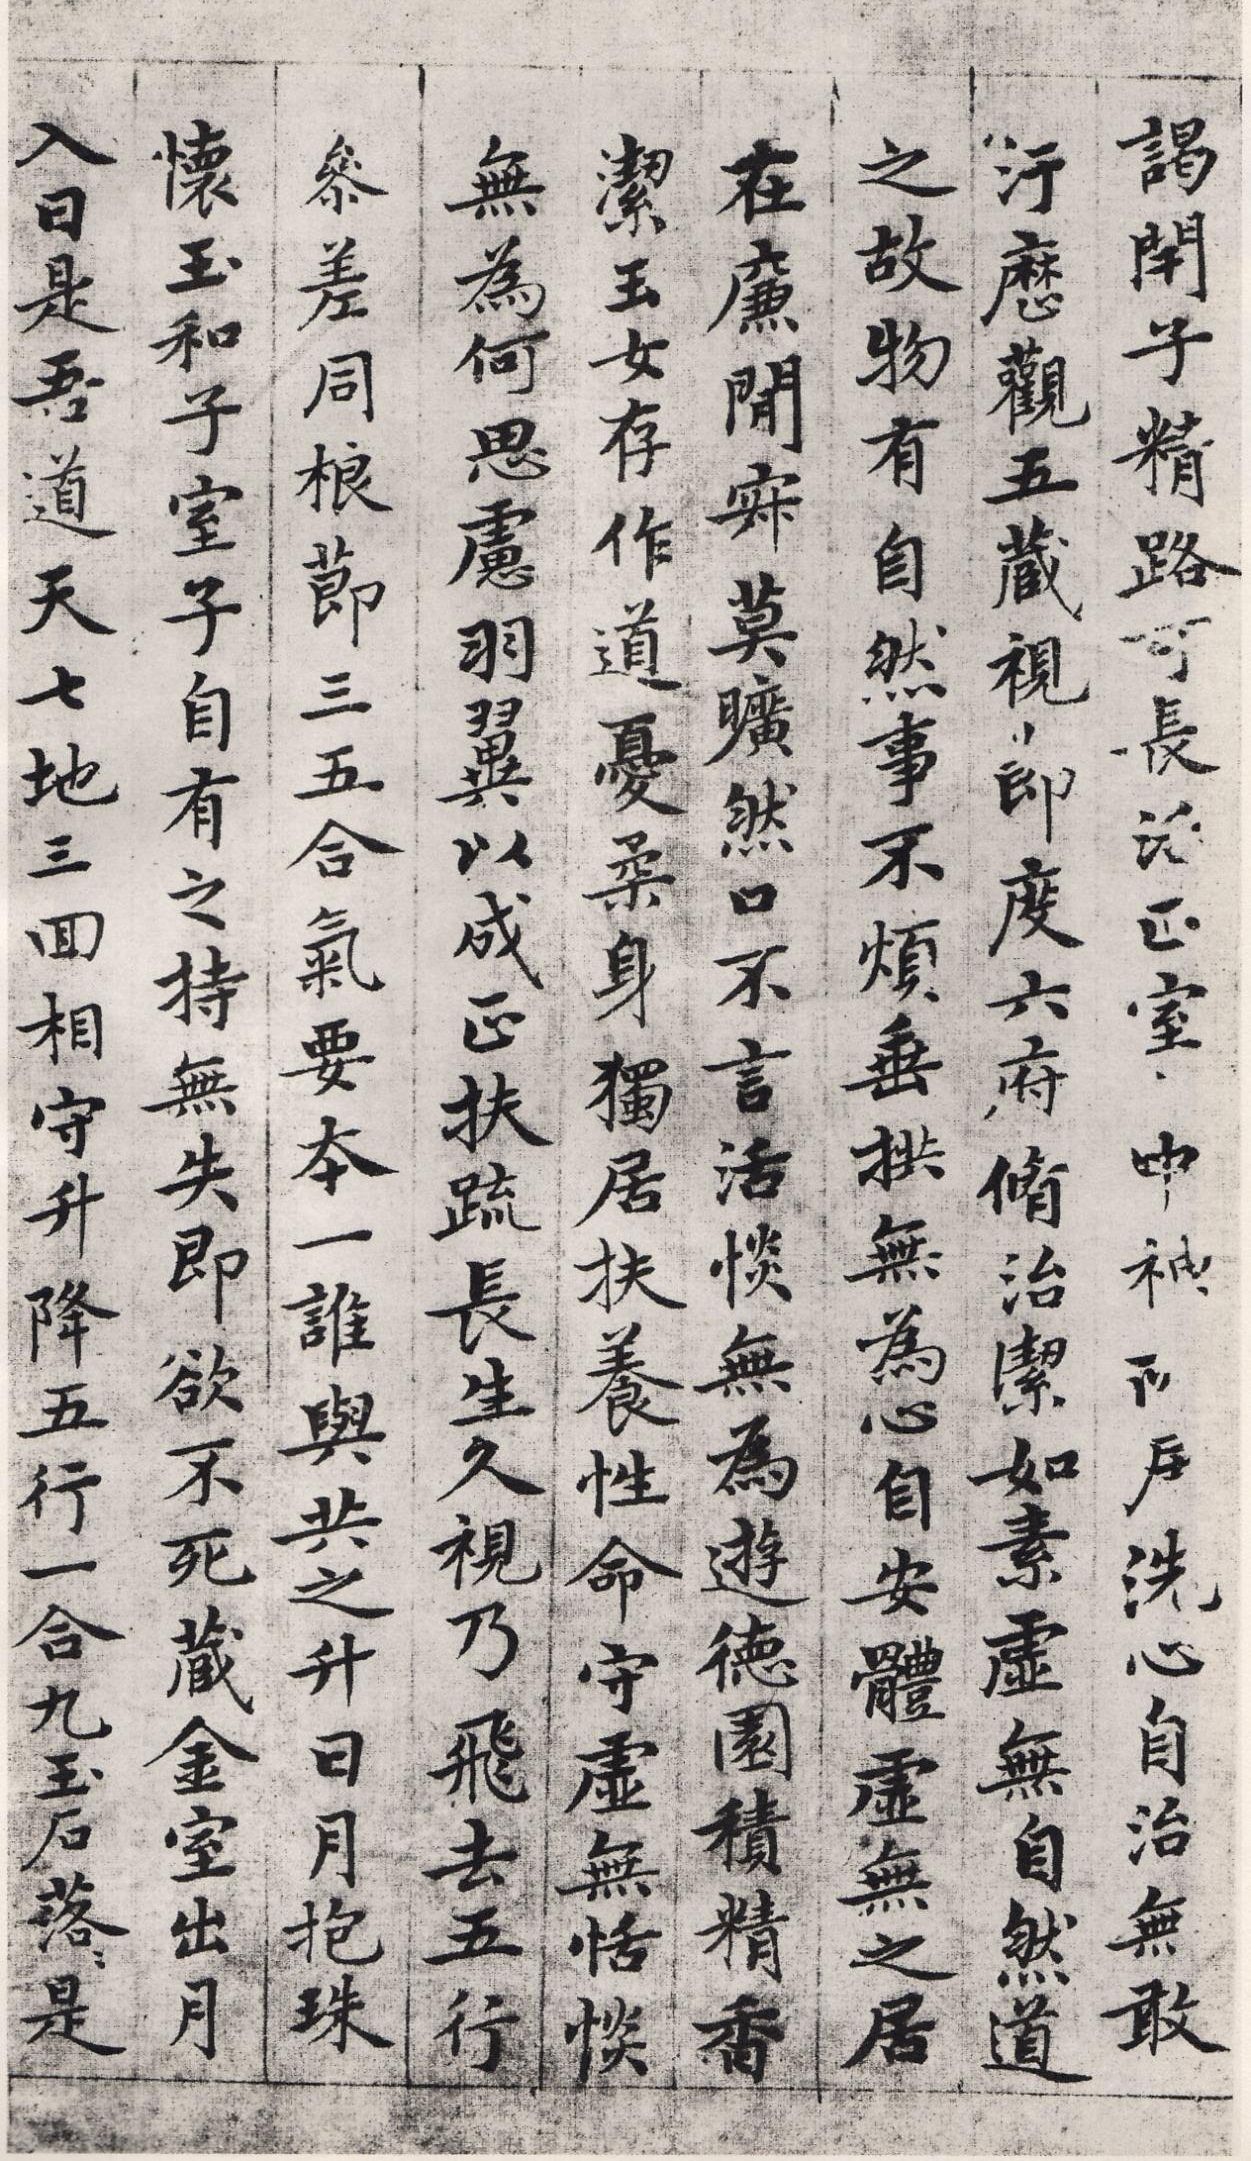 謁閇子精路可長活正室中神所居洗心自治無敢
汙歷觀五藏視節度六府脩治潔如素虛無自然道
之故物有自然事不煩垂拱無為心自安體虛無之居
在廉閒寂莫曠然口不言活惔無為遊德園積精香
潔玉女存作道憂柔身獨居扶養性命守虛無恬惔
無為何思慮羽翼以成正扶疏長生久視乃飛去五行
參差同根莭三五合氣要本一誰與共之升日月抱珠
懷玉和子室子自有之持無失即欲不死藏金室出月
入日是吾道天七地三回相守升降五行一合九玉石落〻是